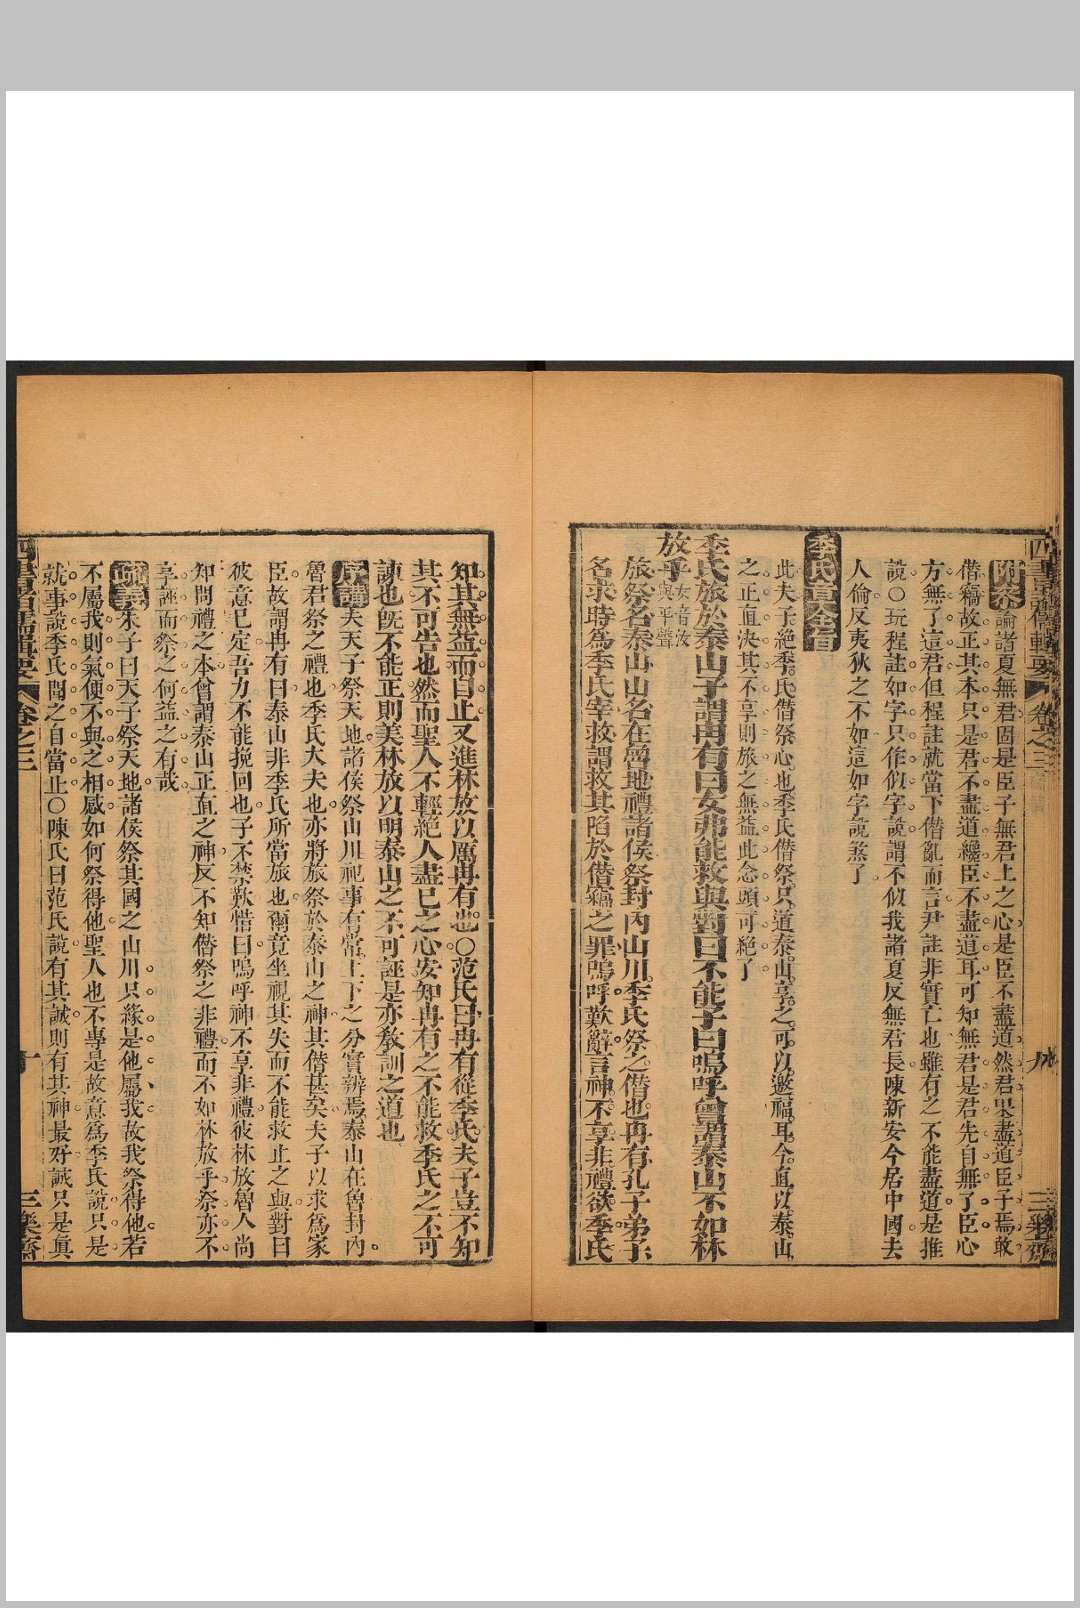 四書諸儒輯要 卷之三 九 三樂齋
附參諭諸夏無君固是臣子無君上之心是臣不盡道然君果盡道臣子焉敢
僭竊故正其本只是君不盡道纔臣不盡道耳可知無君是君先自無了臣心
方無了這君但程註就當下僭亂而言尹註非實亡也雖有之不能盡道是推
說○玩程註如字只作似字說謂不似我諸夏反無君長陳新安今居中國去
人倫反夷狄之不如這如字說煞了
季氏章全旨
此夫子絕季氏僭祭心也季氏僭祭只道泰山享之可以邀福耳今直以泰山
之正直決其不享則旅之無益此念頭可絕了
季氏旅於泰山子謂冉有曰女弗能救與對曰不能子曰嗚呼曾謂泰山不如林
放乎女音汝與平聲
旅祭名泰山山名在魯地禮諸侯祭封內山川季氏祭之僭也冉有孔子弟子
名求時為季氏宰救謂救其陷於僭竊之罪嗚呼歎辭言神不享非禮欲季氏
知其無益而自止又進林放以厲冉有也○范氏曰冉有從季氏夫子豈不知
其不可告也然而聖人不輕絕人盡已之心安知冉有之不能救季氏之不可
諫也既不能正則美林放以明泰山之不可誣是亦教訓之道也
序講夫天子祭天地諸侯祭山川祀事有常上下之分實辨焉泰山在魯封內
魯君祭之禮也季氏大夫也亦將旅祭於泰山之神其僭甚矣夫子以求為家
臣故謂冉有曰泰山非季氏所當旅也爾竟坐視其失而不能救止之與對曰
彼意已定吾力不能挽回也子不禁歎惜曰嗚呼神不享非禮彼林放魯人尚
知問禮之本曾謂泰山正直之神反不知僭祭之非禮而不如林放乎祭亦不
享誣而祭之何益之有哉
疏義朱子曰天子祭天地諸侯祭其國之山川只緣是他屬我故我祭得他若
不屬我則氣便不與之相感如何祭得他聖人也不專是故意為季氏說只是
就事說季氏聞之自當止○陳氏曰范氏說有其誠則有其神最好誠只是真
四書諸儒輯要 卷之三 十 三樂齋